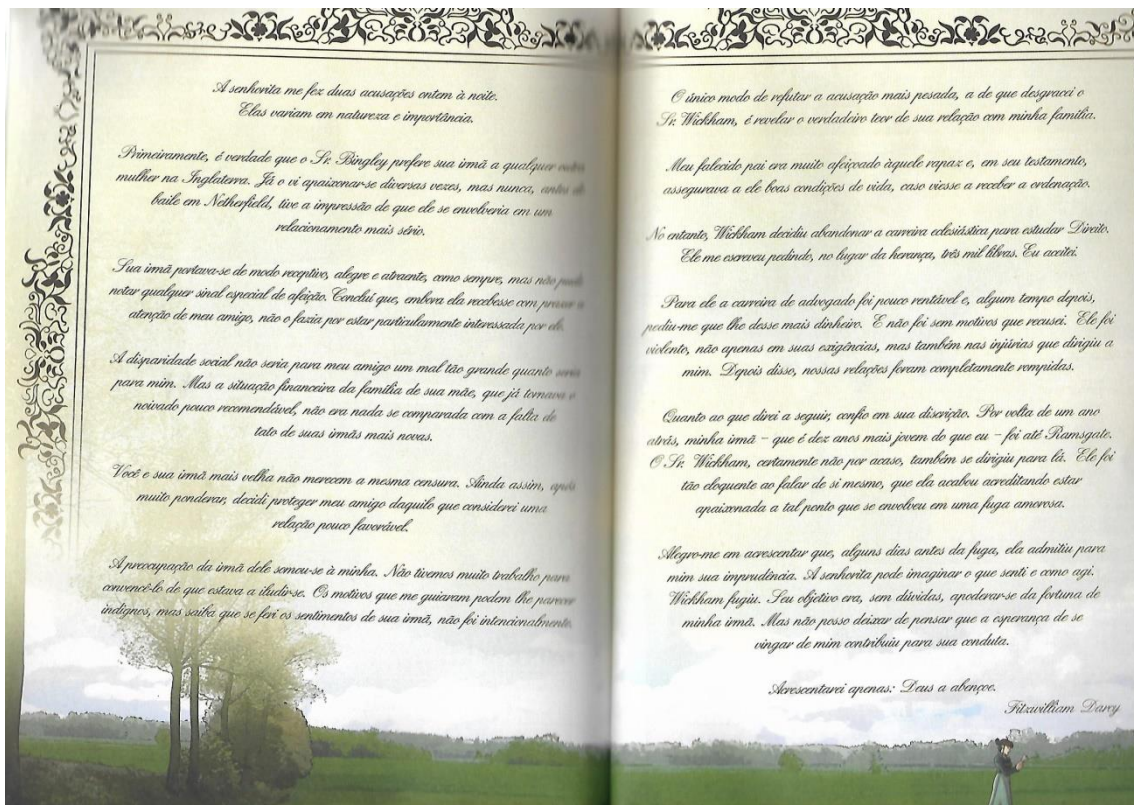 A senhorita me fez duas acusações ontem à noite.
Elas variam em natureza e importância.
Primeiramente, é verdade que o Sr. Bingley prefere sua irmã a qualquer outra
mulher na Inglaterra. Já o vi apaixonar-se diversas vezes, mas nunca, antes do
baile em Netherfield, tive a impressão de que ele se envolveria em um
relacionamento mais sério.
Sua irmã portava-se de modo receptivo, alegre e atraente, como sempre, mas não pude
notar qualquer sinal especial de afeição. Concluí que, embora ela recebesse com prazer a
atenção de meu amigo, não o fazia por estar particularmente interessada por ele.
A disparidade social não seria para meu amigo um mal tão grande quanto seria
para mim. Mas a situação financeira da família de sua mãe, que já tornava o
noivado pouco recomendável, não era nada se comparada com a falta de
tato de suas irmãs mais novas.
Você e sua irmã mais velha não merecem a mesma censura. Ainda assim, após
muito ponderar, decidi proteger meu amigo daquilo que considerei uma
relação pouco favorável.
A preocupação da irmã dele somou-se à minha. Não tivemos muito trabalho para
convencê-lo de que estava a iludir-se. Os motivos que me guiaram podem lhe parecer
indignos, mas saiba que se feri os sentimentos de sua irmã, não foi intencionalmente.
O único modo de refutar a acusação mais pesada, a de que desgracei o
Sr. Wickham, é revelar o verdadeiro teor de sua relação com minha família.
Meu falecido pai era muito afeiçoado àquele rapaz e, em seu testamento,
assegurava a ele boas condições de vida, caso viesse a receber a ordenação.
No entanto, Wickham decidiu abandonar a carreira eclesiástica para estudar Direito.
Ele me escreveu pedindo, no lugar da herança, três mil libras. Eu aceitei.
Para ele a carreira de advogado foi pouco rentável e, algum tempo depois,
pediu-me que lhe desse mais dinheiro. E não foi sem motivos que recusei. Ele foi
violento, não apenas em suas exigências, mas também nas injúrias que dirigiu a
mim. Depois disso, nossas relações foram completamente rompidas.
Quanto ao que direi a seguir, confio em sua discrição. Por volta de um ano
atrás, minha irmã – que é dez anos mais jovem do que eu – foi até Ramsgate.
O Sr. Wickham, certamente não por acaso, também se dirigiu para lá. Ele foi
tão eloquente ao falar de si mesmo, que ela acabou acreditando estar
apaixonada a tal ponto que se envolveu em uma fuga amorosa.
Alegro-me em acrescentar que, alguns dias antes da fuga, ela admitiu para
mim sua imprudência. A senhorita pode imaginar o que senti e como agi.
Wickham fugiu. Seu objetivo era, sem dúvidas, apoderar-se da fortuna de
minha irmã. Mas não posso deixar de pensar que a esperança de se
vingar de mim contribuiu para sua conduta.
Acrescentarei apenas: Deus a abençoe.
Fitzwilliam Darcy